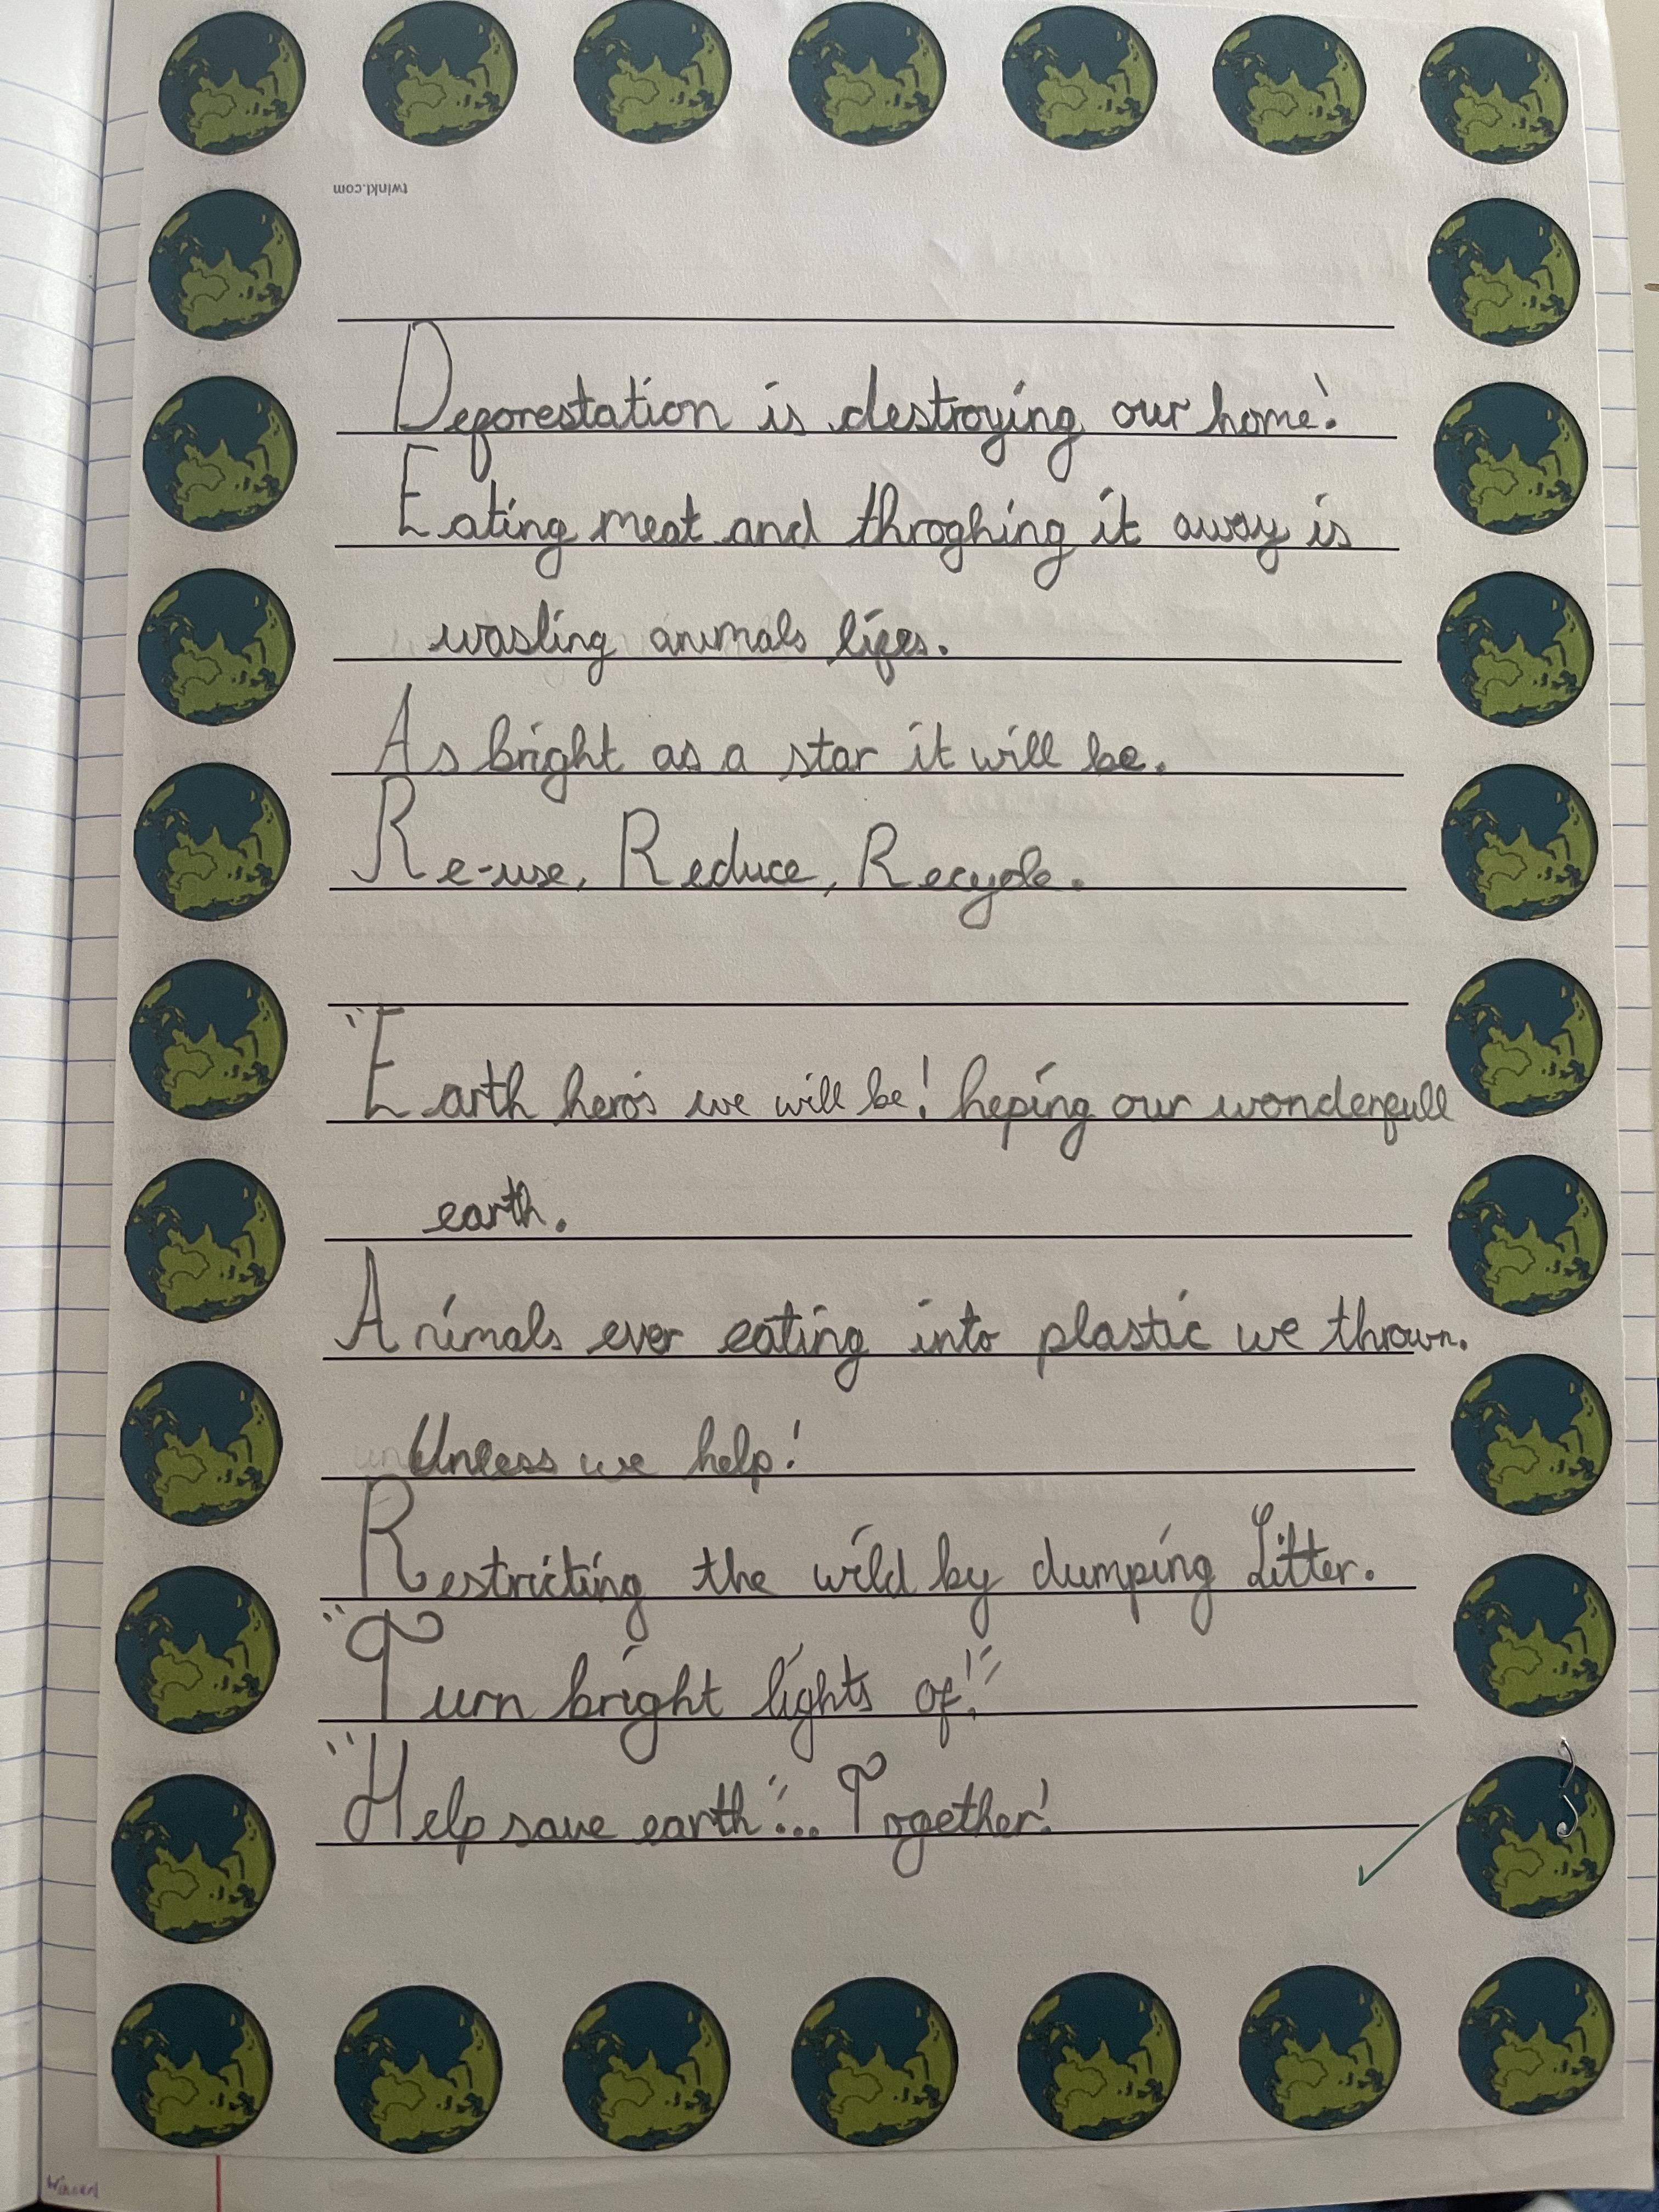 twinkl.com
Deforestation is destroying our home!
Eating meat and throghing it away is
wasting animals lifes.
As bright as a star it will be.
Re-use, Reduce, Recycle.
"Earth hero's we will be! heping our wonderfull
earth.
Animals ever eating into plastic we thrown.
Unless we help!
Restricting the wild by dumping Litter.
"Turn bright lights of!"
"Help save earth"... Together!